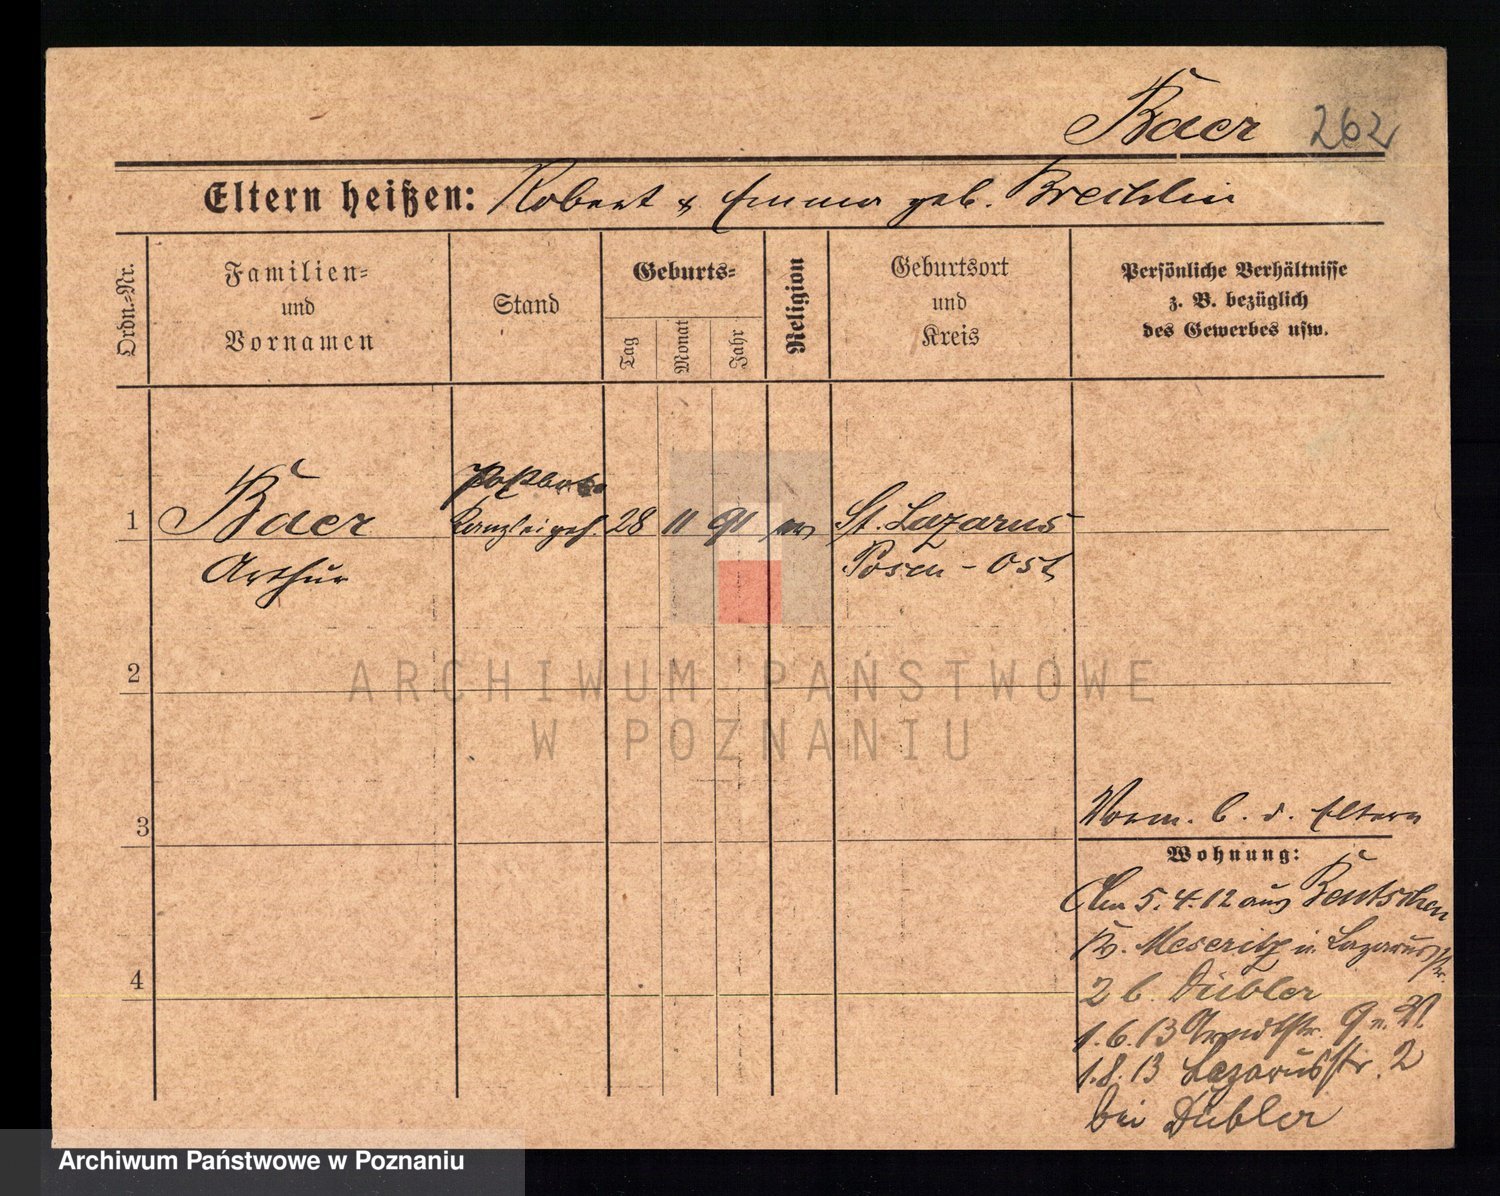 Baer 262
Eltern heißen: Robert & Emma geb. Brechlin
Ordn.-Nr.
Familien- und Vornamen
Stand
Geburts-
Tag
Monat
Jahr
Religion
Geburtsort und Kreis
Persönliche Verhältnisse
z. B. bezüglich
des Gewerbes usw.
1 Baer Kanzleigeh. 28 11 91 ev St. Lazarus
Arthur Posen-Ost
2
3
4
Vorm. b. d. Eltern
Wohnung:
Am 5.4.12 aus Bentschen
Kr. Meseritz n. Lazarusstr.
2 b. Dübler
1.6.13 Arndtstr. 9 n. 21
1.8.13 Lazarusstr. 2
bei Dübler
ARCHIWUM PAŃSTWOWE
W POZNANIU
Archiwum Państwowe w Poznaniu